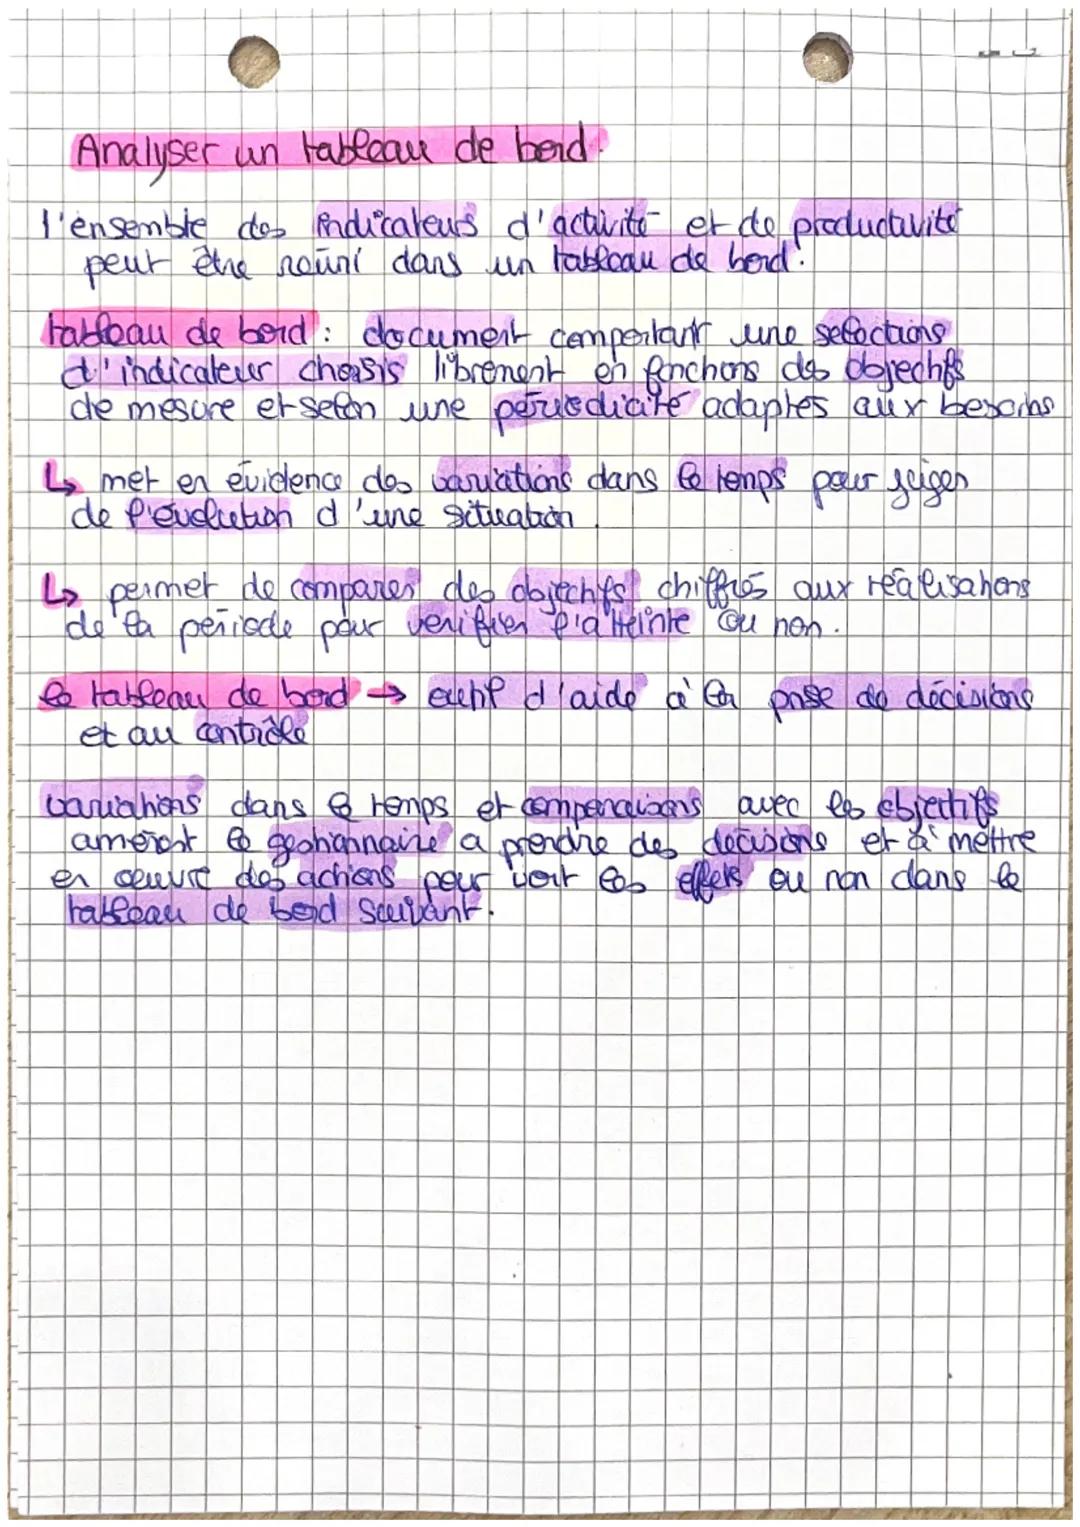 Analyser un tableau de bord.
l'ensemble des indicateurs d'activité et de productivité
peut être réuni dans un tableau de bord.
tableau de bord : document comportant une selections
d'indicateur choisis librement en fonctions des objectifs
de mesure et selon une périodicité adaptés aux besoins
↳ met en évidence des variations dans le temps pour juger
de l'évolution d'une situation.
↳ permet de comparer des objectifs chiffrés aux réalisations
de la période pour vérifier l'atteinte ou non.
le tableau de bord → outil d'aide à la prise de décisions
et au contrôle
variations dans le temps et comparaisons avec les objectifs
amènent le gestionnaire a prendre des décisions et à mettre
en oeuvre des actions pour voir les effets ou non dans le
tableau de bord suivant.